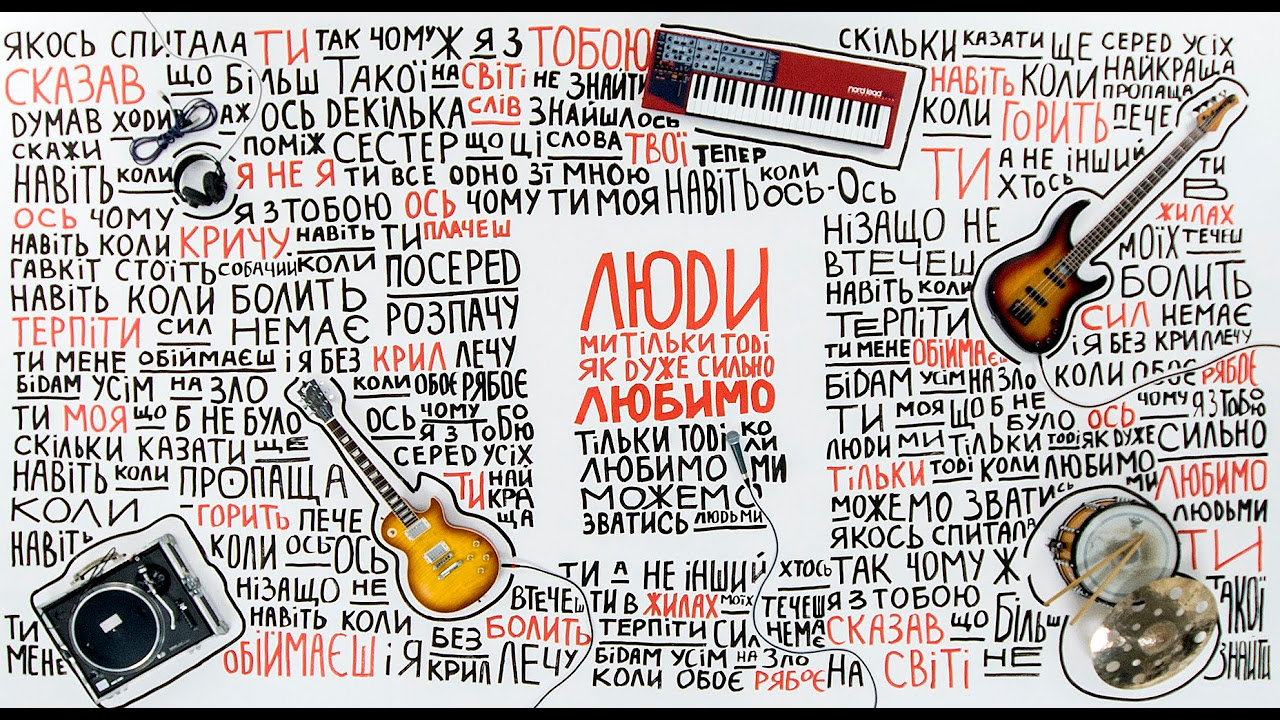 ЯКОСЬ СПИТАЛА ТИ ТАК ЧОМУ Ж Я З ТОБОЮ
СКАЗАВ ЩО БІЛЬШ ТАКОЇ НА СВІТІ НЕ ЗНАЙТИ
DУМАВ ХОДИВ АХ ОСЬ DЕКІЛЬКА СЛІВ ЗНАЙШЛОСЬ
СКАЖИ ПОМІЖ СЕСТЕР ЩО ЦІ СЛОВА ТВОЇ ТЕПЕР
НАВІТЬ КОЛИ Я НЕ Я ТИ ВСЕ ОDНО ЗІ МНОЮ НАВІТЬ КОЛИ ОСЬ-ОСЬ
ОСЬ ЧОМУ Я З ТОБОЮ ОСЬ ЧОМУ ТИ МОЯ
НАВІТЬ КОЛИ КРИЧУ НАВІТЬ ТИ ПЛАЧЕШ
ГАВКІТ СТОЇТЬ СОБАЧИЙ КОЛИ ПОСЕРЕD
НАВІТЬ КОЛИ БОЛИТЬ РОЗПАЧУ
ТЕРПІТИ СИЛ НЕМАЄ
ТИ МЕНЕ ОБІЙМАЄШ І Я БЕЗ КРИЛ ЛЕЧУ
БІDАМ УСІМ НА ЗЛО КОЛИ ОБОЄ РЯБОЄ
ТИ МОЯ ЩО Б НЕ БУЛО ОСЬ ЧОМУ Я З ТОБОЮ
СКІЛЬКИ КАЗАТИ ЩЕ СЕРЕD УСІХ
НАВІТЬ КОЛИ ПРОПАЩА ТИ НАЙКРАЩА
КОЛИ ГОРИТЬ ПЕЧЕ
НАВІТЬ КОЛИ ОСЬ-ОСЬ
НІЗАЩО НЕ ВТЕЧЕШ
НАВІТЬ КОЛИ БОЛИТЬ
ТИ МЕНЕ ОБІЙМАЄШ І Я БЕЗ КРИЛ ЛЕЧУ
nord lead
ЛЮDИ
МИ ТІЛЬКИ ТОDІ
ЯК DУЖЕ СИЛЬНО
ЛЮБИМО
ТІЛЬКИ ТОDІ КОЛИ
ЛЮБИМО МИ
МОЖЕМО
ЗВАТИСЬ ЛЮDЬМИ
ТИ А НЕ ІНШИЙ ХТОСЬ
ТИ В ЖИЛАХ МОЇХ ТЕЧЕШ
ТЕРПІТИ СИЛ НЕМАЄ
БІDАМ УСІМ НА ЗЛО
КОЛИ ОБОЄ РЯБОЄ
СКІЛЬКИ КАЗАТИ ЩЕ СЕРЕD УСІХ
НАВІТЬ КОЛИ НАЙКРАЩА ПРОПАЩА
КОЛИ ГОРИТЬ ПЕЧЕ
ТИ А НЕ ІНШИЙ ХТОСЬ ТИ В
НІЗАЩО НЕ ЖИЛАХ
ВТЕЧЕШ МОЇХ ТЕЧЕШ
НАВІТЬ КОЛИ БОЛИТЬ
ТЕРПІТИ СИЛ НЕМАЄ
ТИ МЕНЕ ОБІЙМАЄШ І Я БЕЗ КРИЛ ЛЕЧУ
БІDАМ УСІМ НА ЗЛО КОЛИ ОБОЄ РЯБОЄ
ТИ МОЯ ЩО Б НЕ БУЛО ОСЬ ЧОМУ Я З ТОБОЮ
ЛЮDИ МИ ТІЛЬКИ ТОDІ ЯК DУЖЕ СИЛЬНО
ТІЛЬКИ ТОDІ КОЛИ ЛЮБИМО МИ ЛЮБИМО
МОЖЕМО ЗВАТИСЬ ЛЮDЬМИ
ЯКОСЬ СПИТАЛА ТИ
ТАК ЧОМУ Ж
Я З ТОБОЮ
СКАЗАВ ЩО БІЛЬШ ТАКОЇ
НА СВІТІ НЕ ЗНАЙТИ